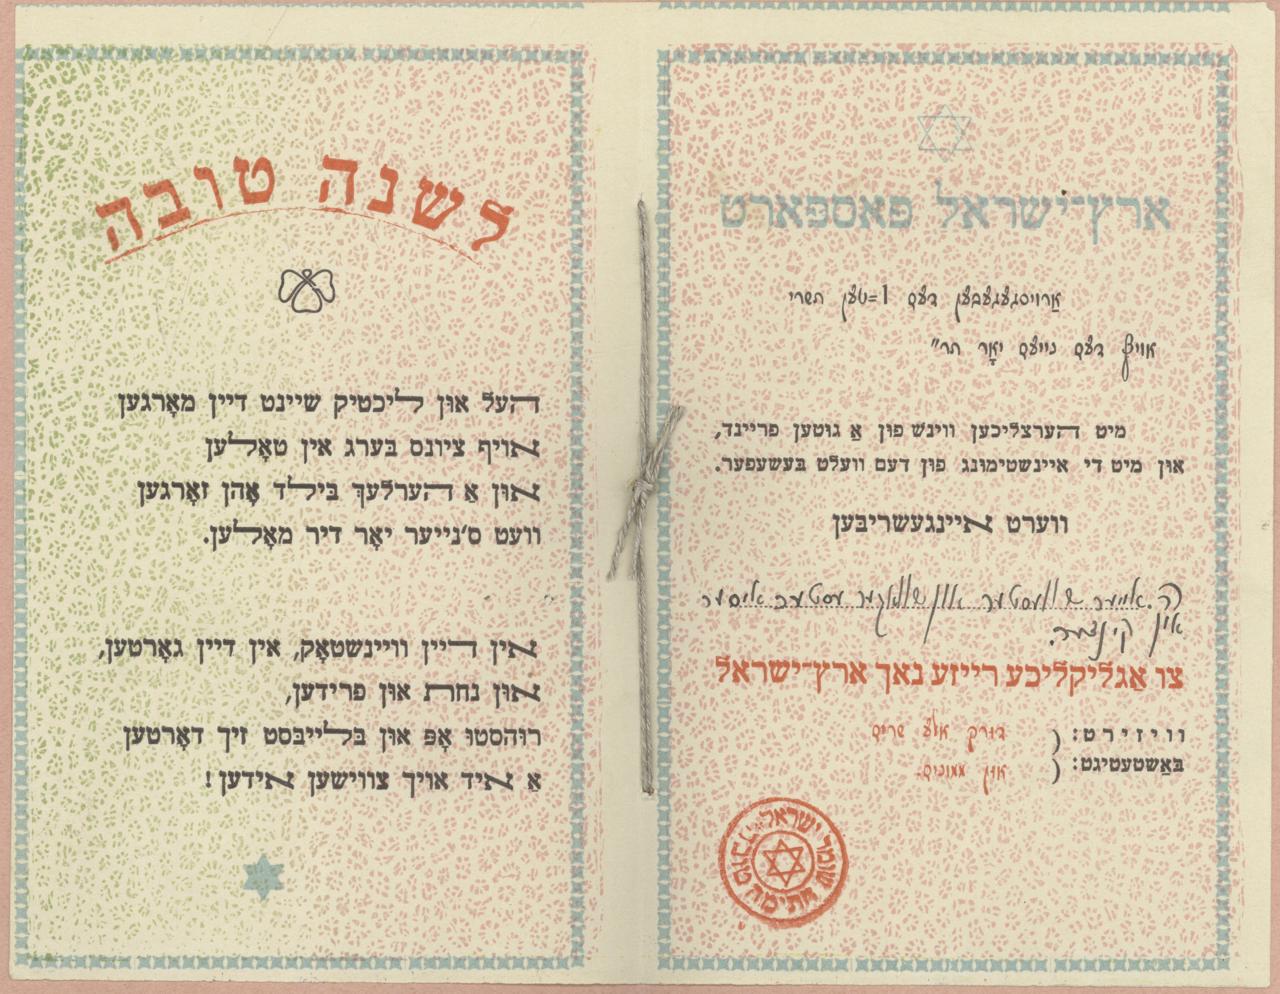 ארץ־ישראל פּאספּארט
ארויסגעגעבען דעם 1=טען תשרי
אויף דעם נייעם יאָר תר״
מיט הערצליכען ווינש פון אַ גוטען פריינד,
און מיט די איינשטימונג פון דעם וועלט בעשעפער.
ווערט איינגעשריבען
ה. אייער שוועסטער און שוואגער עסטער
אין קינדער.
צו אַ גליקליכע רייזע נאך ארץ־ישראל
וויזירט:
באַשטעטיגט:
דורך אלע שרים
און ממונים.
שומר ישראל
חתימה טובה
לשנה טובה
העל און ליכטיק שיינט דיין מאָרגען
אויף ציונס בערג אין טאָלען
און אַ הערלעך בילד אָהן זאָרגען
וועט ס׳נייער יאָר דיר מאָלען.
אין דיין וויינשטאָק, אין דיין גאָרטען,
און נחת און פרידען,
רוהסטו אָפּ און בלייבסט זיך דאָרטען
אַ איד אויך צווישען אידען!